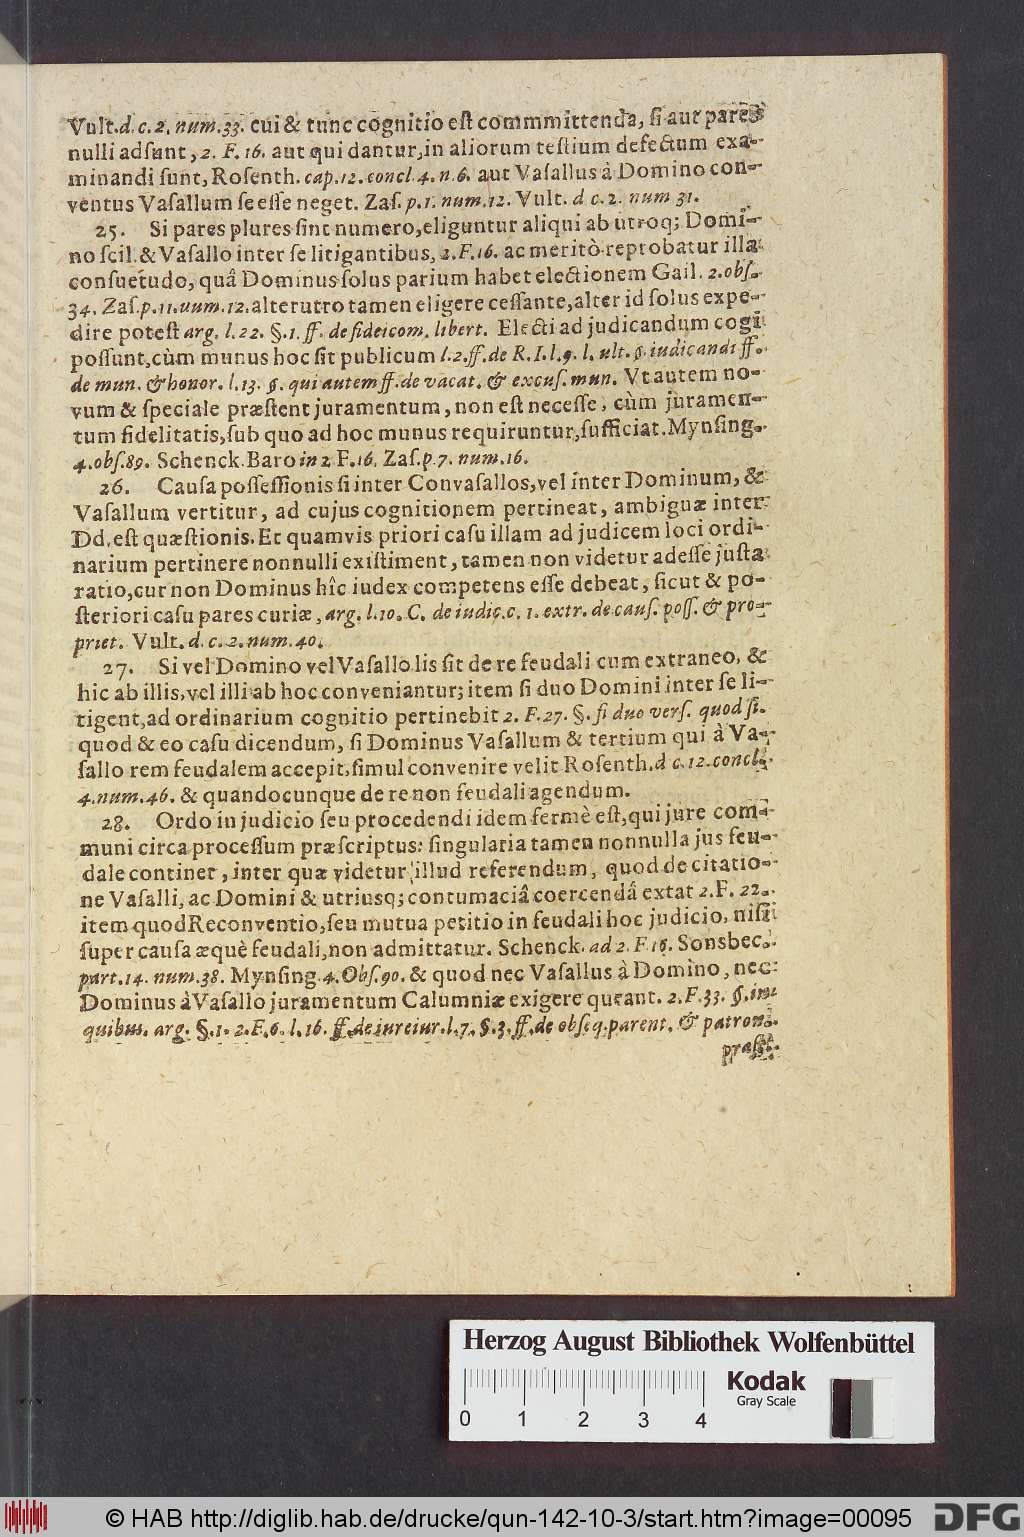 Vult. d. c. 2. num. 33. cui & tunc cognitio est commmittenda, si aut pares
nulli adsunt, 2. F. 16. aut qui dantur, in aliorum testium defectum exa-
minandi sunt, Rosenth. cap. 12. concl. 4. n. 6. aut Vasallus à Domino con-
ventus Vasallum se esse neget. Zas. p. 1. num. 12. Vult. d c. 2. num 31.
25. Si pares plures sint numero, eliguntur aliqui ab utroq; Domi-
no scil. & Vasallo inter se litigantibus, 2. F. 16. ac meritò reprobatur illa
consuetudo, quâ Dominus solus parium habet electionem Gail. 2. obs.
34. Zas. p. 11. uum. 12. alterutro tamen eligere cessante, alter id solus expe-
dire potest arg. l. 22. §. 1. ff. de fideicom. libert. Electi ad judicandum cogi
possunt, cùm munus hoc sit publicum l. 2. ff. de R. I. l. 9. l. ult. §. iudicandi ff.
de mun. & honor. l. 13. §. qui autem ff. de vacat. & excus. mun. Vt autem no-
vum & speciale præstent juramentum, non est necesse, cùm juramen-
tum fidelitatis, sub quo ad hoc munus requiruntur, sufficiat. Mynsing.
4. obs. 89. Schenck. Baro in 2 F. 16. Zas. p. 7. num. 16.
26. Causa possessionis si inter Convasallos, vel inter Dominum, &
Vasallum vertitur, ad cujus cognitionem pertineat, ambiguæ inter
Dd. est quæstionis. Et quamvis priori casu illam ad judicem loci ordi-
narium pertinere nonnulli existiment, tamen non videtur adesse justa
ratio, cur non Dominus hîc iudex competens esse debeat, sicut & po-
steriori casu pares curiæ, arg. l. 10. C. de iudic. c. 1. extr. de caus. poss. & pro-
priet. Vult. d. c. 2. num. 40.
27. Si vel Domino vel Vasallo lis sit de re feudali cum extraneo, &
hic ab illis, vel illi ab hoc conveniantur; item si duo Domini inter se li-
tigent, ad ordinarium cognitio pertinebit 2. F. 27. §. si duo vers. quod si.
quod & eo casu dicendum, si Dominus Vasallum & tertium qui à Va-
sallo rem feudalem accepit, simul convenire velit Rosenth. d c. 12. concl.
4. num. 46. & quandocunque de re non feudali agendum.
28. Ordo in judicio seu procedendi idem fermè est, qui jure com-
muni circa processum præscriptus: singularia tamen nonnulla jus feu-
dale continet, inter quæ videtur illud referendum, quod de citatio-
ne Vasalli, ac Domini & utriusq; contumaciâ coercendâ extat 2. F. 22.
item quod Reconventio, seu mutua petitio in feudali hoc judicio, nisi
super causa æquè feudali, non admittatur. Schenck. ad 2. F. 16. Sonsbec.
part. 14. num. 38. Mynsing. 4. Obs. 90. & quod nec Vasallus à Domino, nec
Dominus à Vasallo juramentum Calumniæ exigere queant. 2. F. 33. §. in
quibus. arg. §. 1. 2. F. 6. l. 16. ff. de iureiur. l. 7. §. 3. ff. de obseq. parent. & patron.
præst.
Herzog August Bibliothek Wolfenbüttel
0 1 2 3 4
Kodak
Gray Scale
© HAB http://diglib.hab.de/drucke/qun-142-10-3/start.htm?image=00095
DFG